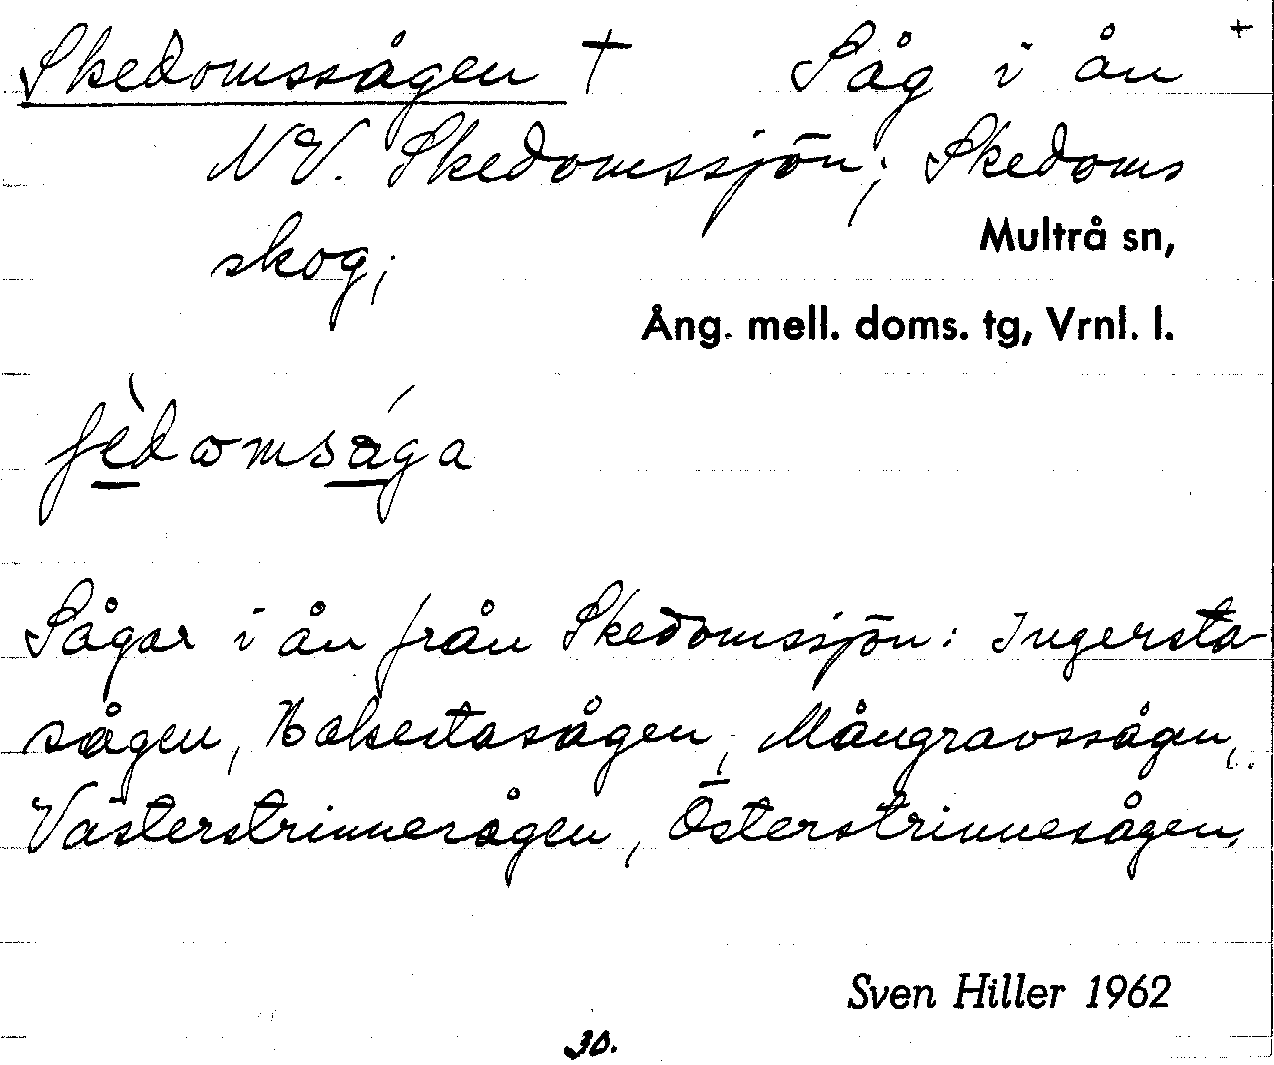 Skedomssågen † Såg i ån +
NV. Skedomssjön; Skedoms
skog;
Multrå sn,
Ång. mell. doms. tg, Vrnl. l.
ʃèdωmsága
Sågar i ån från Skedomssjön: Ingersta-
sågen, Mångravssågen,
Västerstrinnesågen, Österstrinnesågen.
Sven Hiller 1962
30.